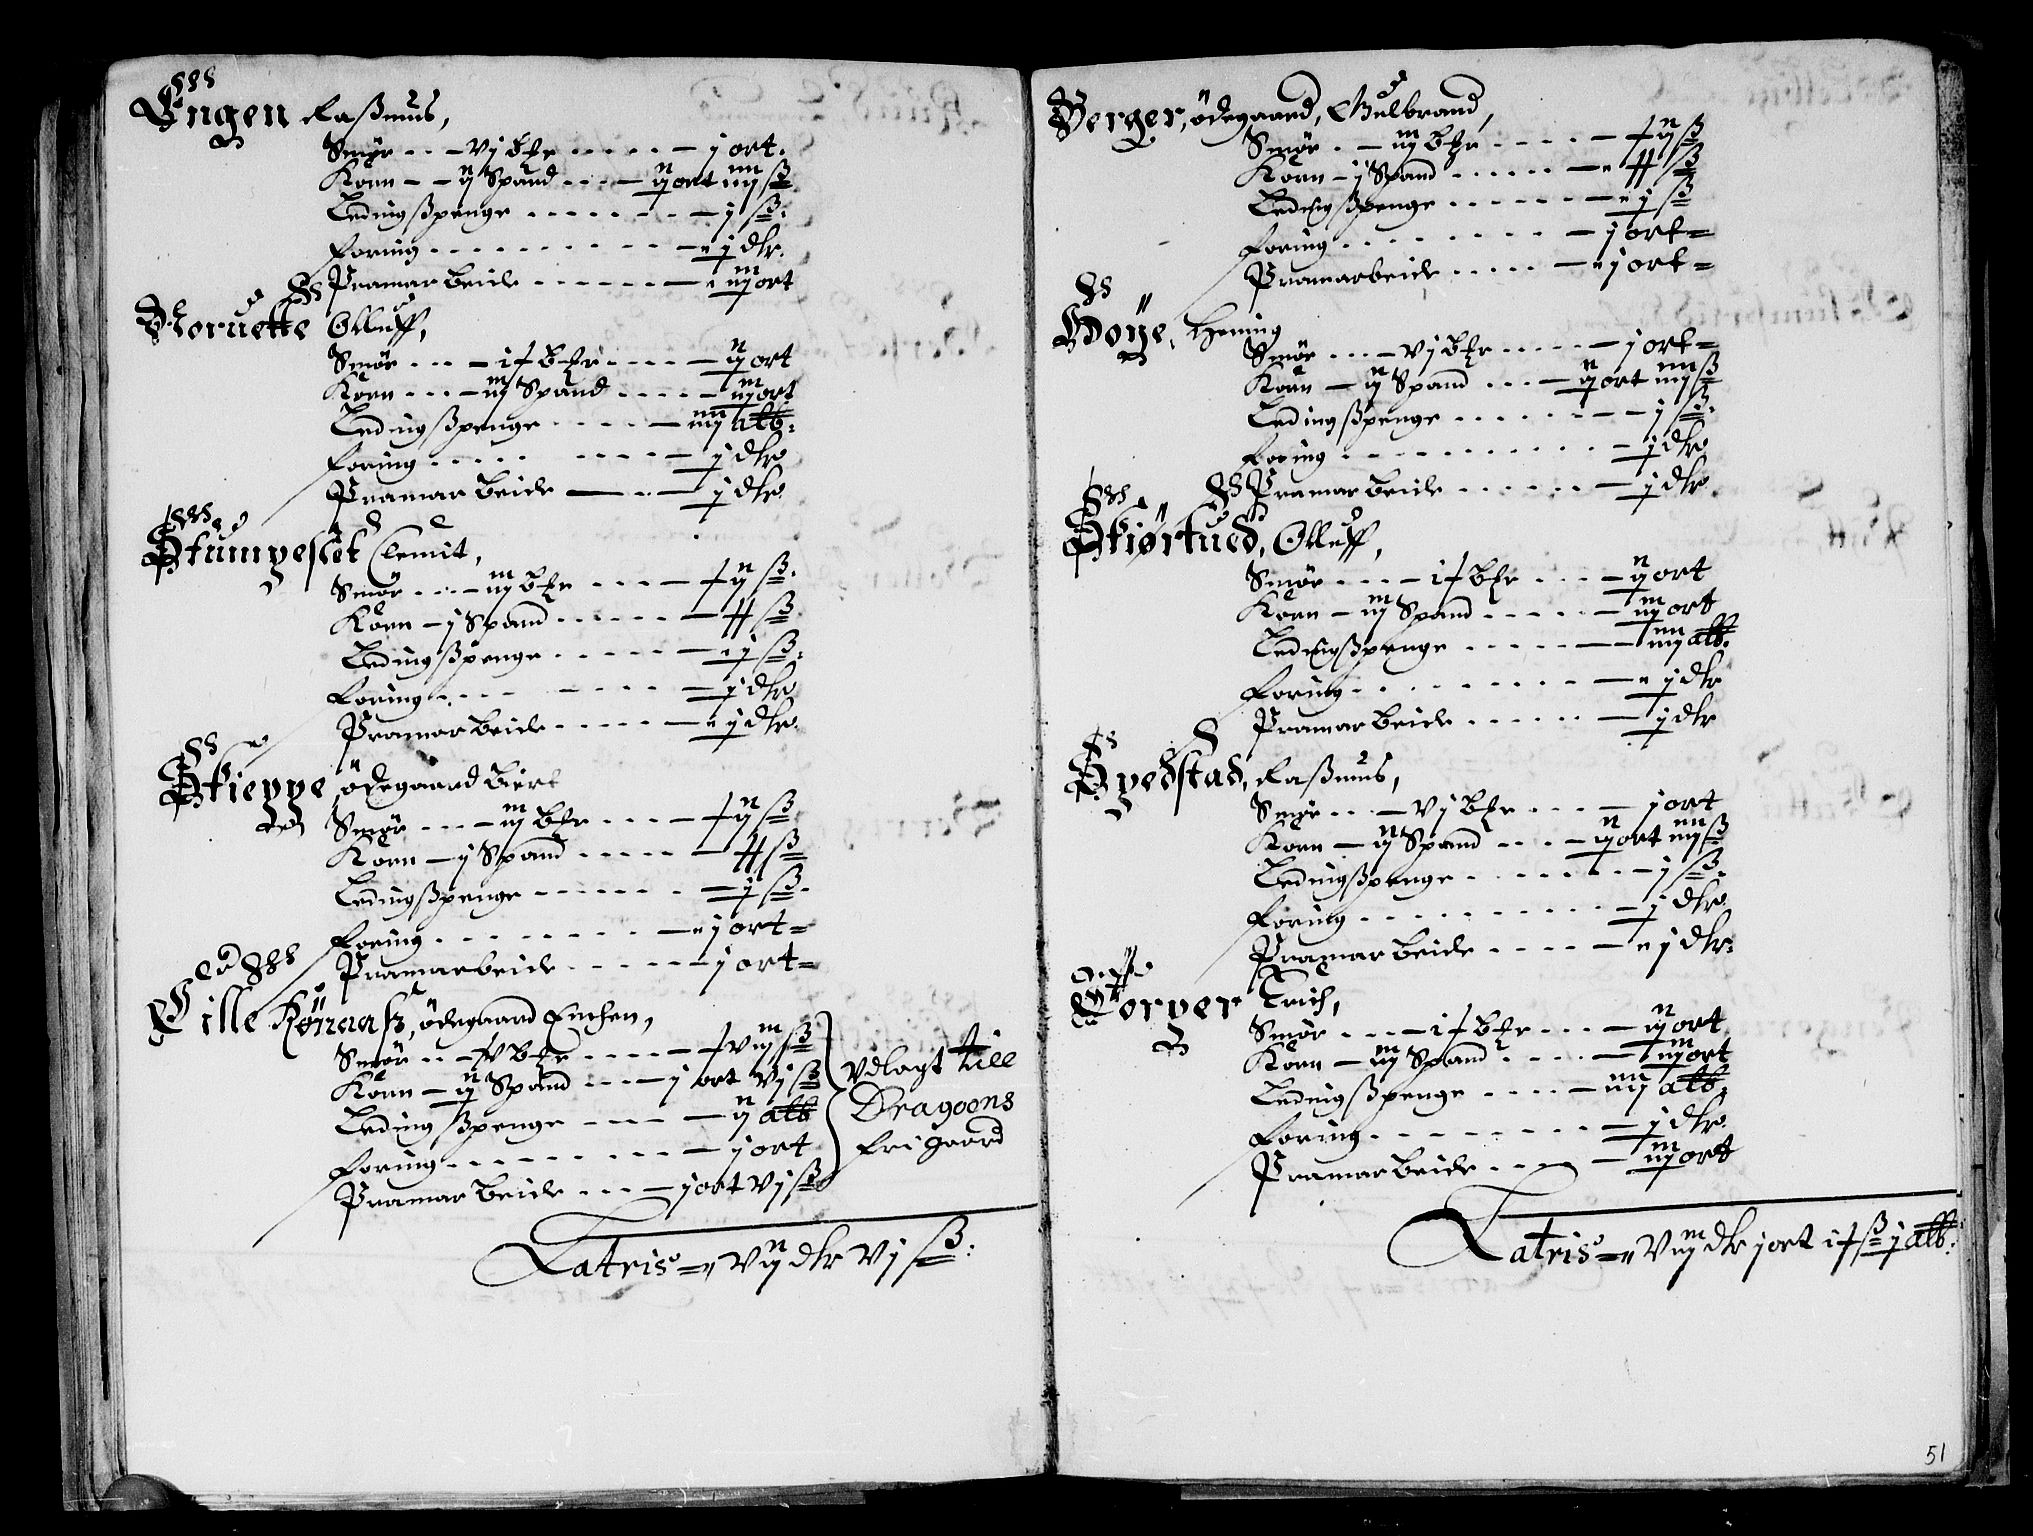 Engen Raßmus,
Smør - - - vj bkr - - - - - j ort.
Korn - - ij Spand - - - ij ort iiij ß
Ledingßpenge - - - - - - j ß.
Foring - - - - - - - j dlr.
Pramarbeide - - - - - - iij ort
Noruette Olluff,
Smør - - - ix bkr - - - - ij ort
Korn - - - iij Spand - - - - iij ort
Ledingßpenge - - - - - iiij alb.
Foring - - - - - - - - j dlr
Pramarbeide - - - j dlr
Stumpeslet Clemit,
Smør - - - iij bkr - - - - xij ß.
Korn - j Spand - - - - - - xx ß
Ledingßpenge - - - - - - j ß.
Foring - - - - - - - - j dlr
Pramarbeide - - - - - - j dlr.
Skieppe ødegaard Biert
Smør - - - iij bkr - - - - xij ß
Korn - j Spand - - - - - - xx ß
Ledingßpenge - - - - - - j ß.
Foring - - - - - - - - j ort =
Pramarbeide - - - - - j ort =
Lille Kønaas, ødegaard Enchen,
Smør - - xv bkr - - - - xviij ß
Korn - ij Spand - - - j ort vj ß
Ledingßpenge - - - - ij alb
Foring - - - - - - - - j ort
Pramarbeide - - - j ort vj ß
Vdlagt till
Dragoons
frigaard
Latris = vij dlr vj ß.
Berger, ødegaard, Gulbrand,
Smør - - iij bkr - - - - - xij ß
Korn - j Spand - - - - - - xx ß
Ledingßpenge - - - - - - j ß
Foring - - - - - - - - j ort =
Pramarbeide - - - - - j ort =
Høye, Hening
Smør - - - vj bkr - - - - - j ort =
Korn - ij Spand - - - ij ort iiij ß
Ledingßpenge - - - - - - j ß.
Foring - - - - - - - - - j dlr
Pramarbeide - - - - - - j dlr
Skiørtued, Olluff,
Smør - - - - ix bkr - - - - ij ort
Korn - iij Spand - - - - - iij ort
Ledingßpenge - - - - - iiij alb.
Foring - - - - - - - - j dlr
Pramarbeide - - - - - - j dlr
Spedstad, Raßmus,
Smør - - - vj bkr - - - - j ort
Korn - ij Spand - - - - ij ort iiij ß
Ledingßpenge - - - - - - j ß.
Foring - - - - - - - - - j dlr
Pramarbeide - - - - - j dlr.
Torper Erich,
Smør - - - - ix bkr - - - - ij ort
Korn - iij Spand - - - - - iij ort
Ledingßpenge - - - - iiij alb.
Foring - - - - - - - - j dlr
Pramarbeide - - - - iij ort
Latris = viij dlr j ort ix ß j alb.
51